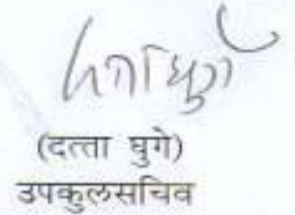 (दत्ता घुगे)
उपकुलसचिव